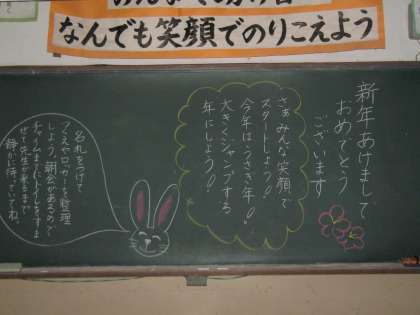 なんでも笑顔でのりこえよう
新年あけまして
おめでとう
ございます
さあ みんな笑顔で
スタートしよう!
今年はうさぎ年!
大きくジャンプする
年にしよう!
名札をつけて
つくえやロッカーを整理
しよう。朝会があるので
せて先生が来るまで
静かに待っていてね。